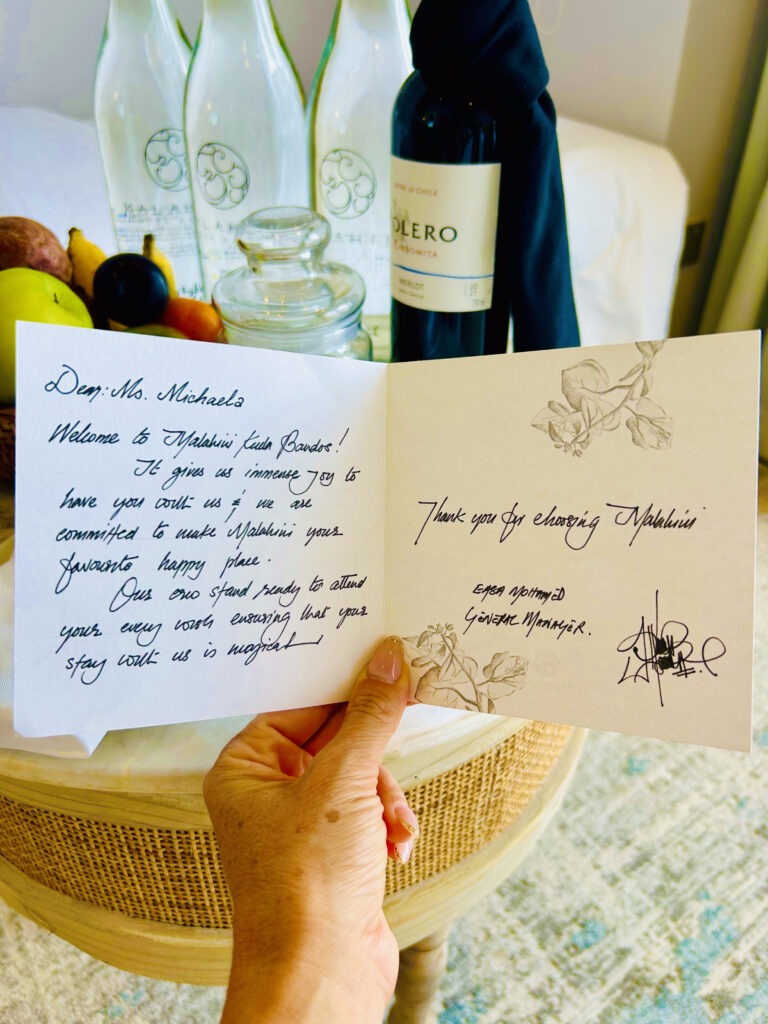 WINE of CHILE
OLERO
MERLOT
Dear: Ms. Michaela
Welcome to Malahini Kuda Bandos!
It gives us immense joy to
have you with us & we are
committed to make Malahini your
favourite happy place.
Our crew stand ready to attend
your every wish ensuring that your
stay with us is magical
Thank you for choosing Malahini
EASA MOHAMED
GENERAL MANAGER.